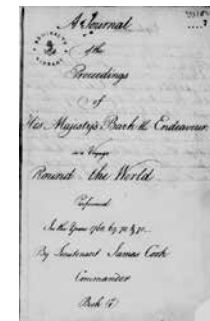 A Journal
of the
Proceedings
of
His Majesty's Bark the Endeavour
on a Voyage
Round the World
Performed
In the Years 1768, 69, 70 & 71
By Lieutenant James Cook
Commander
ADMIRALTY LIBRARY